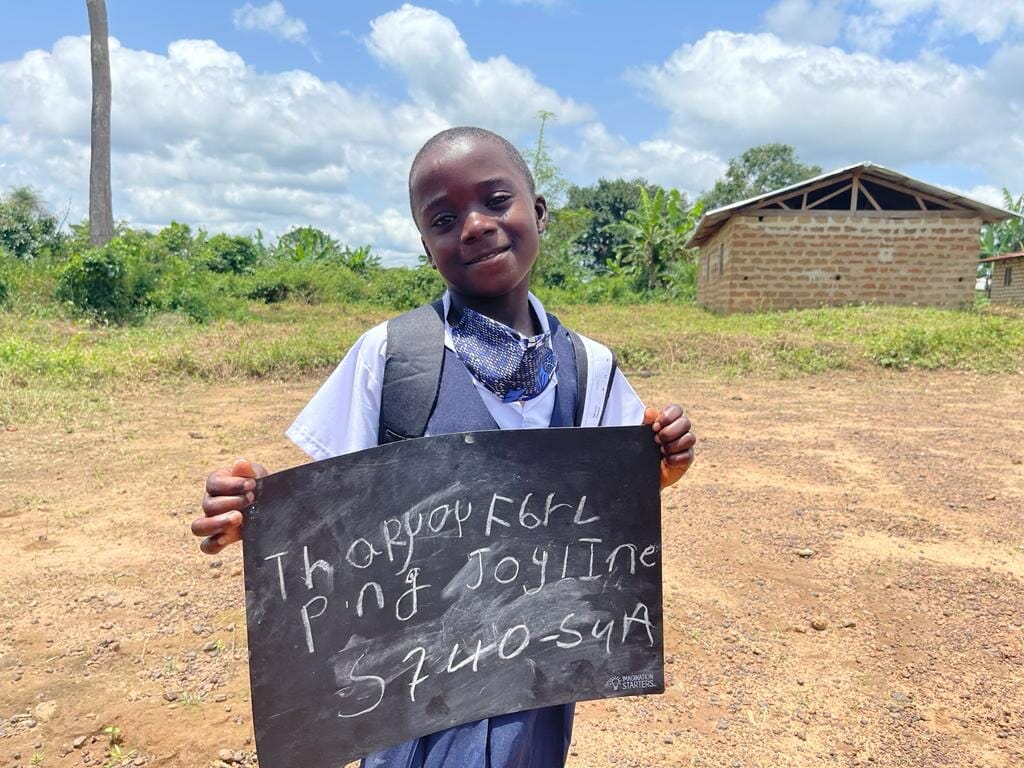 Thapyoy F6rL
P.ng JoylIne
S740-SyA
IMAGINATION
STARTERS